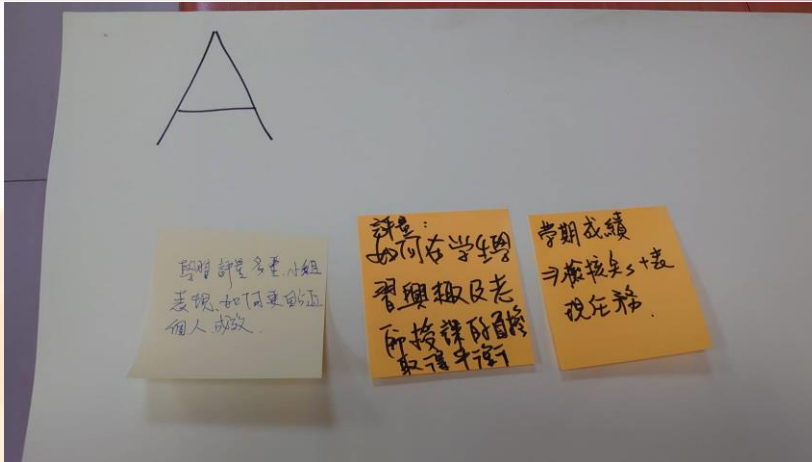 A
學習評量多重,小組
表現,如何更貼近
個人成效.
評量:
如何在学生學
習興趣及老
師授課的負擔
取得平衡
學期成績
⇒檢核矣s+表
現任務.